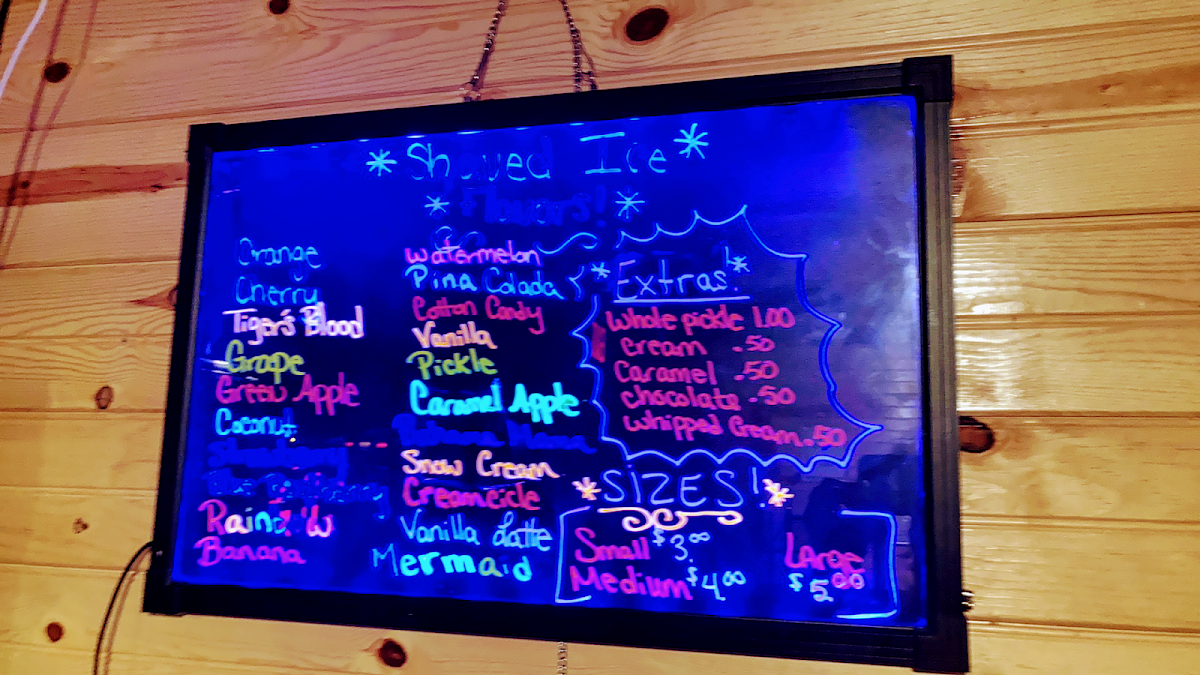 * Shaved Ice *
* Flavors! *
Orange
Cherry
Tiger's Blood
Grape
Green Apple
Coconut
Strawberry
Blue Raspberry
Rainbow
Banana
Watermelon
Pina Colada
Cotton Candy
Vanilla
Pickle
Caramel Apple
Bahama Mama
Snow Cream
Creamcicle
Vanilla Latte
Mermaid
* Extras! *
Whole pickle 1.00
Cream .50
Caramel .50
chocolate .50
whipped Cream .50
* SIZES! *
Small $3.00
Medium $4.00
LArge
$5.00